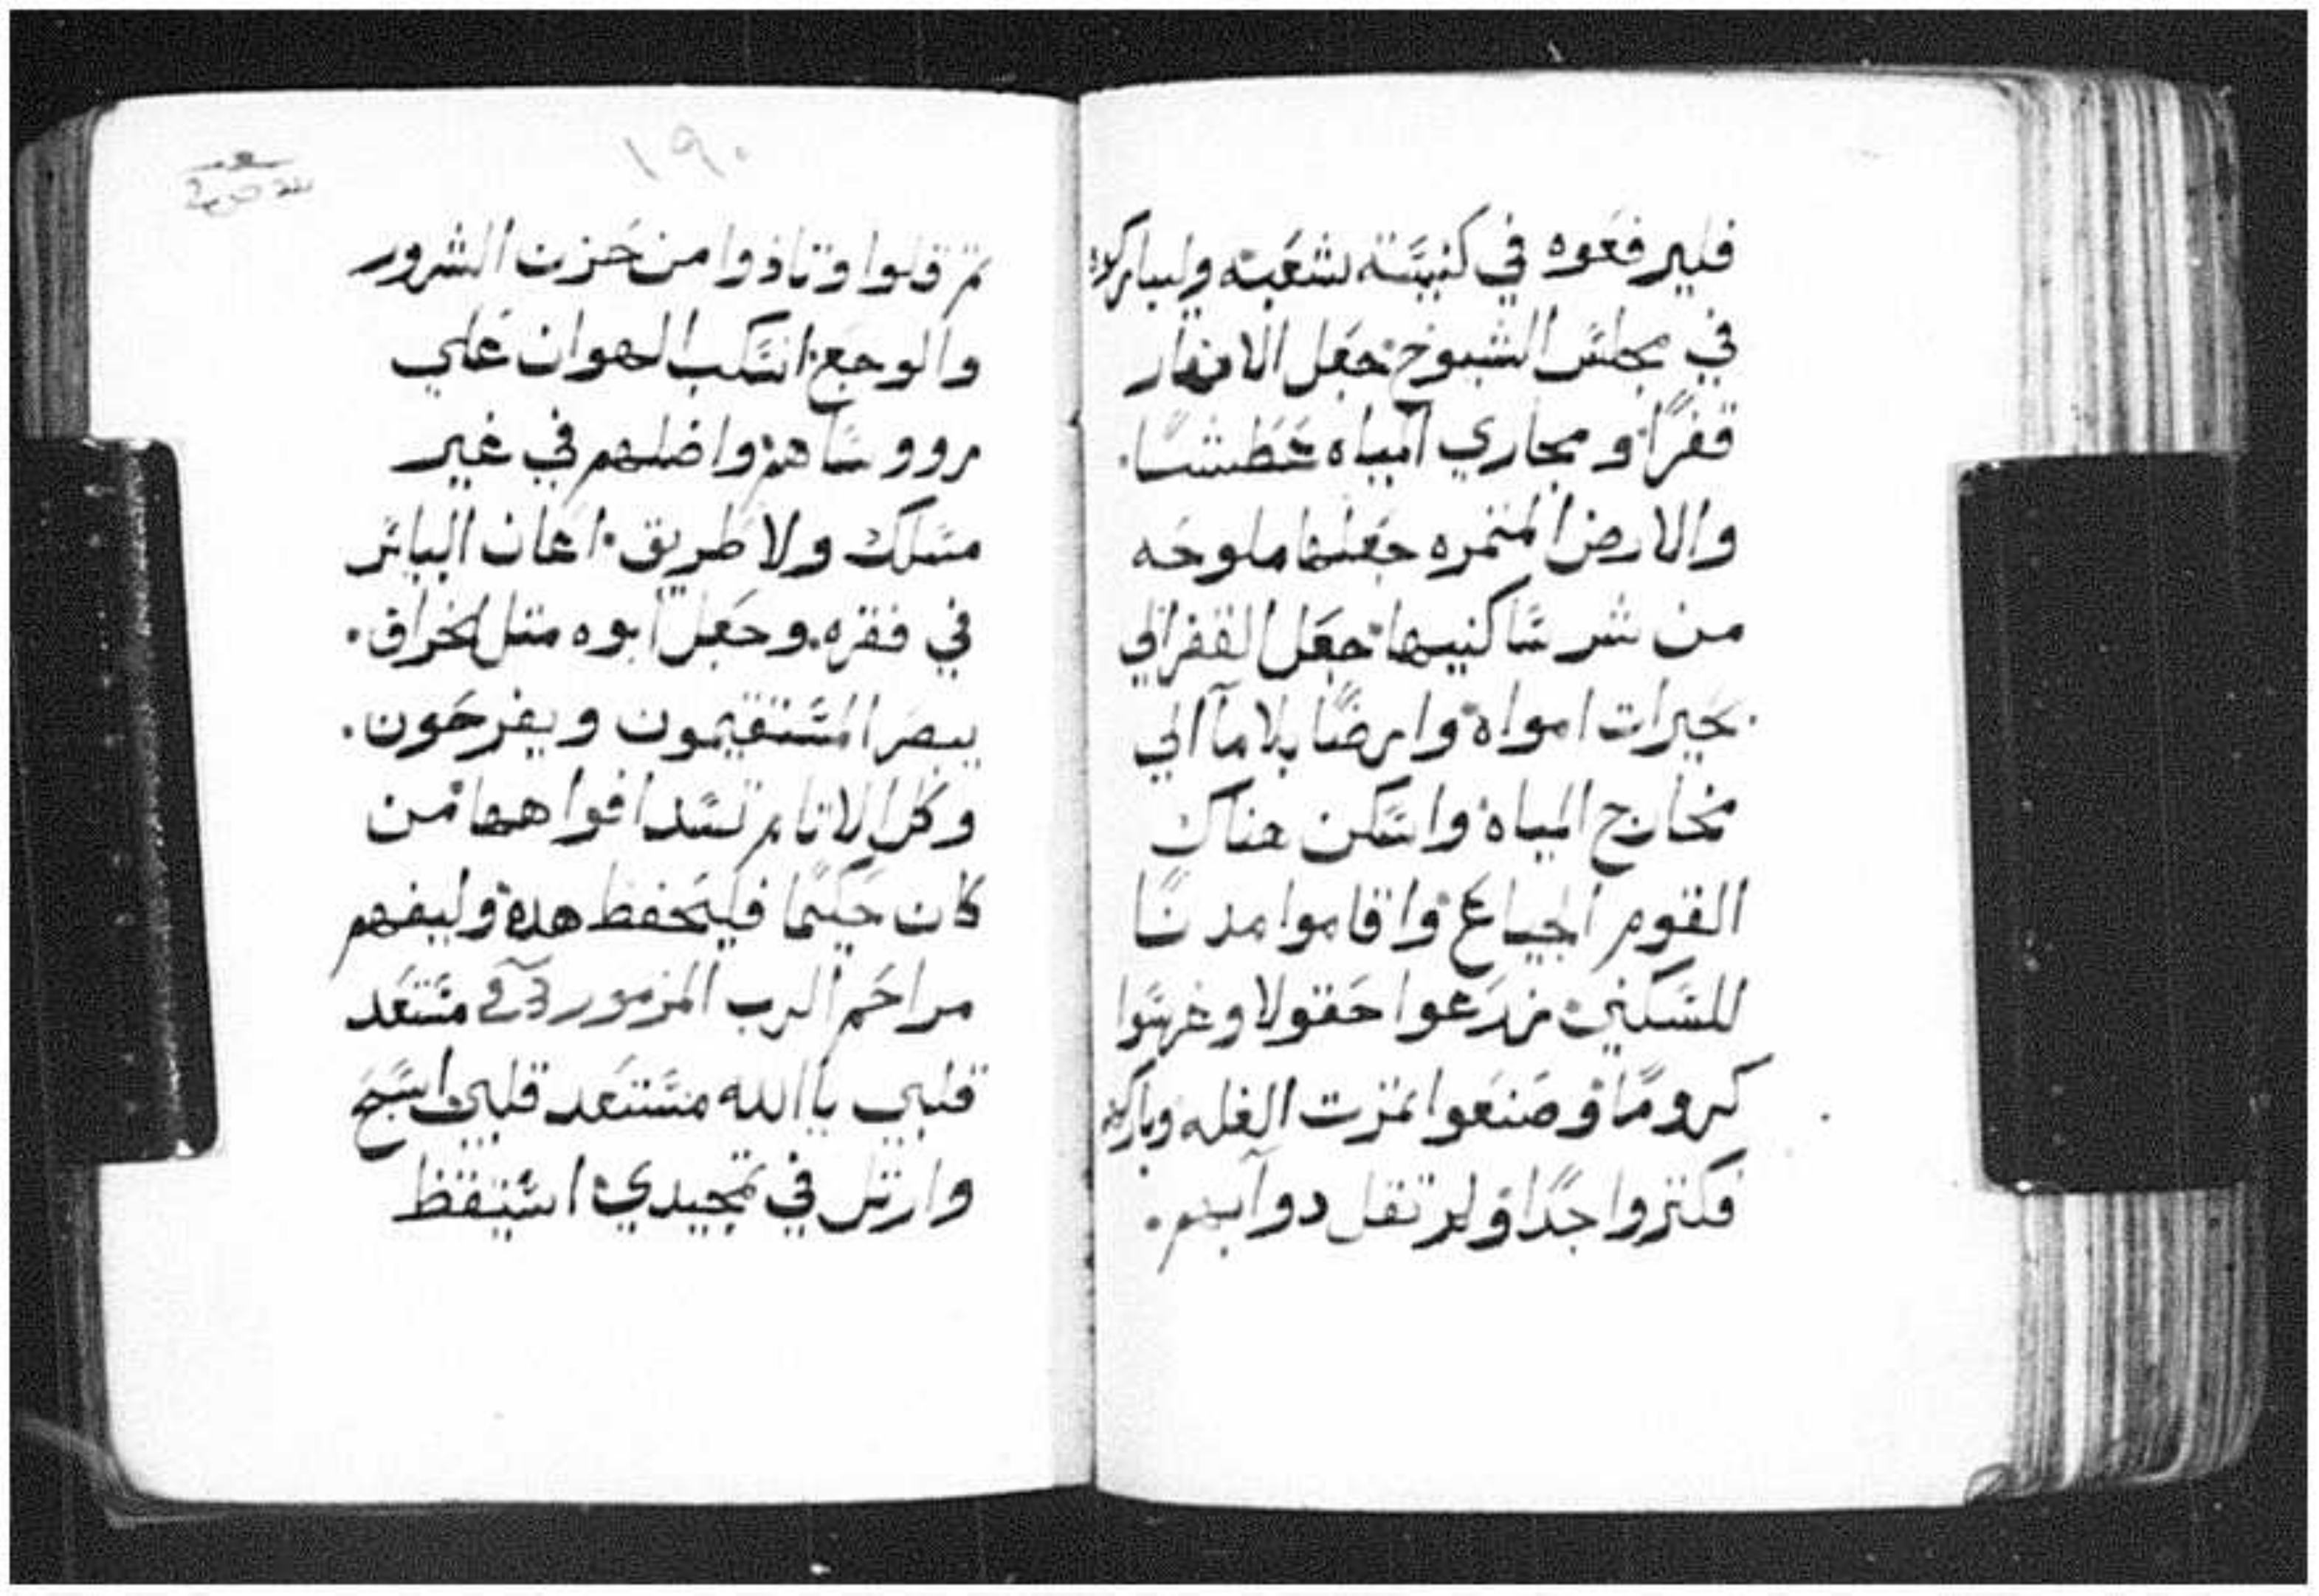 فليرفعوه في كنيسة شعبه وليباركوه
في مجلس الشيوخ جعل الانهار
قفرًا ومجاري المياه عطشا.
والارض المتمره جعلها ملوحه
من شر ساكنيها جعل القفر الي
بحيرات امواه وارضًا بلا ما الي
مخارج المياه واسكن هناك
القوم الجياع واقاموا مدنًا
للسكني زرعوا حقولا وغرسوا
كرومًا وصنعوا تمرت الغله وباركهم
فكتروا جدًا ولم تقل دوآبهم.
١٩٠
تم قلوا وتاذوا من حزن الشرور
والوجع انسكب الهوان علي
رووساهم واضلهم في غير
مسلك ولا طريق اعان البائس
في فقره. وجعل ابوه متل الخراف.
يبصر المستقيمون ويفرحون.
وكل الاتام تسد افواهها من
كان حكيمًا فليحفظ هده وليفهم
مراحم الرب المزمور مستعد
قلبي ياالله مستعد قلبي اسبح
وارتل في تمجيدي استيقظ